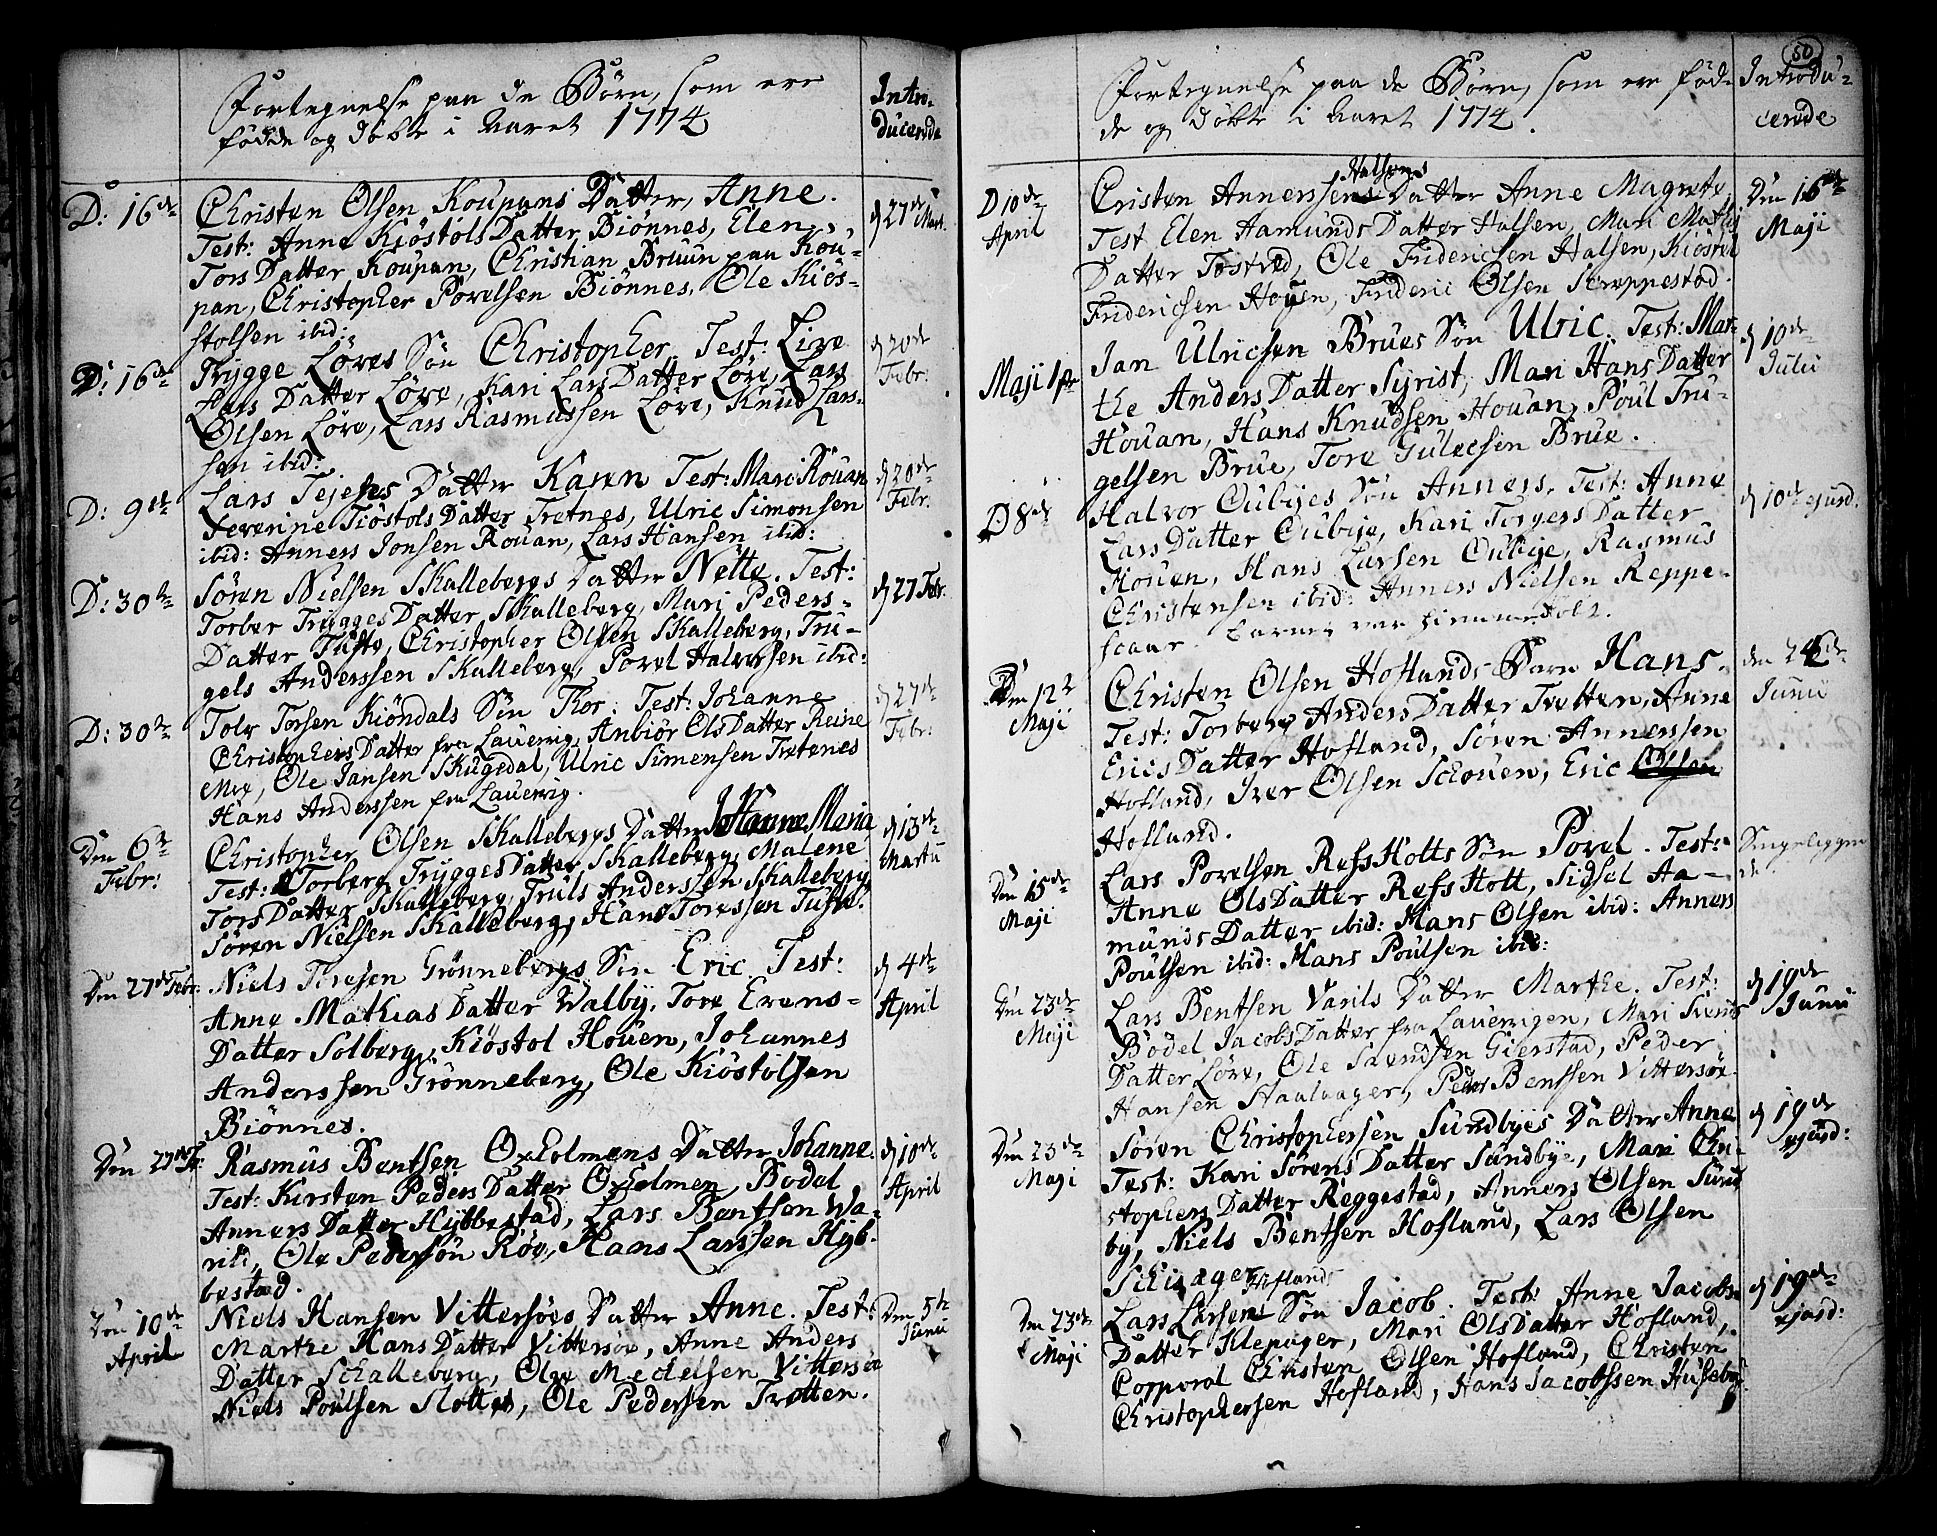 Fortegnelse paa de Börn, som ere
födde og döbte i Aaret 1774
Intro-
ducerede
D: 16de
Christen Olsen Koupans Datter, Anne.
d 27de Mart.
Test: Anne KiöstolsDatter Biönnes, Elen
TorsDatter Koupan, Christian Bruun paa Kou-
pan, Christopher Povelsen Biönnes, Ole Kiös-
stolsen ibid:
D: 16de
Trÿgge Löves Sön Christopher. Test: Live
d 20de
Febr:
Lars Datter Löve, Kari LarsDatter Löve, Lars
Olsen Löve, Lars Rasmussen Löve, Knud Lars-
sen ibid:
D: 9de
Lars Tejenes Datter Karen Test: Mari Rouan
d 20de
Febr:
Severine TiöstolsDatter Tretnes, Ulric Simonsen
ibid: Anners Jonsen Rouan, Lars Hansen ibid:
D: 30te
Sören Nielsen Skallebergs Datter Nette. Test:
d 27 Febr.
Torber TrÿggesDatter Skalleberg, Mari Peders-
Datter Tufte, Christopher Olsen Skalleberg, Tru-
gels Anderssen Skalleberg, Povel Halversen ibid:
D: 30te
Tolv Torsen Kiöndals Sön Thor. Test: Johanne
d 27de
Febr:
ChristophersDatter fra Lauervig, Anbiör OlsDatter Reine
Moe, Ole Jansen Skugedal, Ulric Simensen Tretenes
Hans Anderssen fra Lauervig.
Den 6te
Febr:
Christopher Olsen Skallebergs Datter Johanne Maria
d 13de
Martii
Test: Torberg TrÿggesDatter Skalleberg, Malene
TorsDatter Skalleberg, Truls Anderssen Skalleberg
Sören Nielsen Skalleberg, Hans Toressen Tufte.
Den 27de Febr:
Niels Toresen Grönnebergs Sön Eric. Test:
d 4de
April
Anne Mathias Datter Walbÿ, Tore Evens-
Datter Solberg, Kiöstol Houen, Johannes
Anderssen Grönneberg, Ole Kiöstolsen
Biönnes.
Den 27de F:
Rasmus Bentsen Oxholmens Datter Johanne.
d 10de
April
Test: Kirsten PedersDatter Oxolmen, Bodel
AnnersDatter Hÿbbestad, Lars Bentsen Wa-
rild, Ole Pedersön Röe, Hans Larssen Hÿb-
bestad.
Den 10de
April
Niels Hansen Vittersöes Datter Anne. Test:
Den 5te
Junii
Marthe HansDatter Vittersöe, Anne Anders
Datter Schalleberg, Olge Mechelsen Vittersöe
Niels Poulsen Slottet, Ole Pedersen Trötten.
50
Fortegnelse paa de Börn, som ere föd-
de og döbte i Aaret 1774.
Introdu-
cerede
D 10de
April
Cristen Annerssens Halsens Datter Anne Magrete
Den 16de
Maji
Test Elen Aamunds Datter Halsen, Mari Mathis
Datter Tostved, Ole Fridericsen Halsen, Kiöstol
Fridericsen Houen, Frideric Olsen Skreppestad.
Maji 1ste
Jan Ulricsen Brues Sön Ulric. Test: Mar-
d 10de
Julii
the AndersDatter Syrist, Mari HansDatter
Houan, Hans Knudsen Houan, Poul Tru-
gelsen Brue, Tore Gulecsen Brue.
D 8de
Halvor Oubijes Sön Anners. Test: Anne
d 10de ejusd.
LarsDatter Oubije, Kari TorgersDatter
Houen, Hans Larsen Oubije, Rasmus
Christensen ibid: Anners Nielsen Reppe-
scaar. Barnet var hiemmedöbt.
Den 12te
Maji
Christen Olsen Hoflands Barn Hans.
den 24de
Junii
Test: Torberg AndersDatter Tretten, Anne
EricsDatter Hofland, Sören Annerssen
Hofland, Iver Olsen Schouen, Eric Olsen
Hofland.
Den 15de
Maji
Lars Povelsen RefsHolts Sön Povel. Test:
Anne OlsDatter RefsHolt, Sidsel Aa-
mundsDatter ibid: Hans Olsen ibid: Anners
Poulsen ibid: Hans Poulsen ibid:
Den 23de
Maji
Lars Bentsen Varils Datter Marthe. Test:
d 19de
Junii
Bodel JacobsDatter fra Lauervigen, Mari Svends
Datter Löve, Ole Svendsen Gierstad, Peder
Hansen Haaluager, Peder Benssen Vittersöe.
Den 23de
Maji
Sören Christophersen Sundbÿes Datter Anne
d 19de
ejusd:
Test: Kari SörensDatter Sundbÿe, Mari Chri-
stophersDatter Reggestad, Anners Olsen Sund
bÿ, Niels Bentsen Hofland, Lars Olsen
Schisager
Den 23de
Maji
Lars Larsens Hoflands Sön Jacob. Test: Anne Jacobs
d 19de
ejusd:
Datter Klepager, Mari OlsDatter Hofland,
Corporal Christen Olsen Hofland, Christen
Christophersen Hofland, Hans Jacobssen Husebÿ.